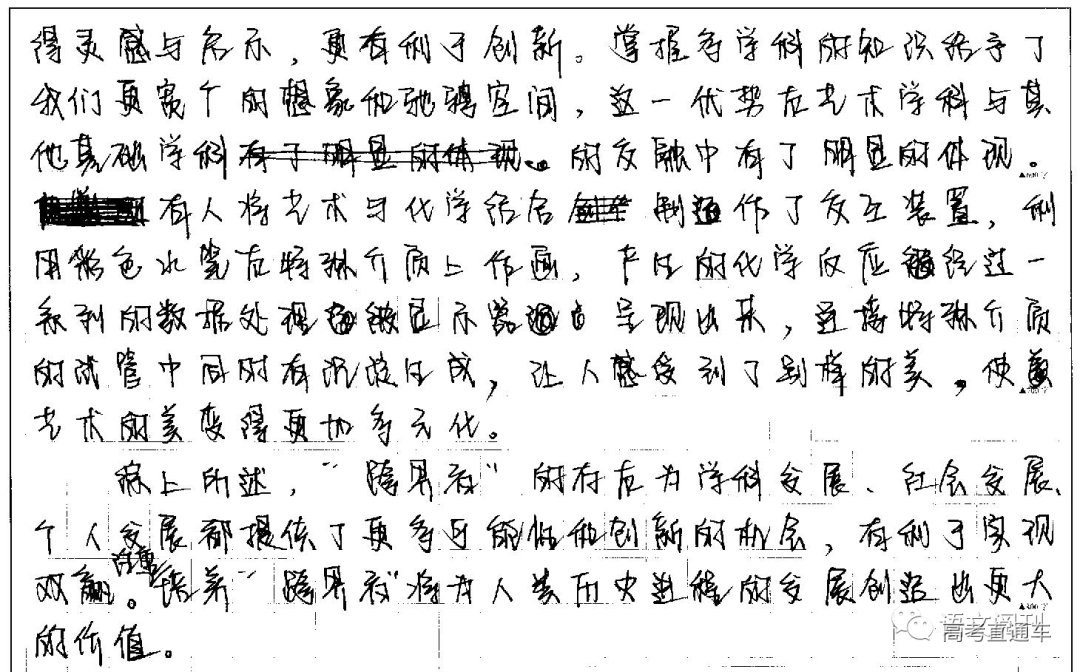 得灵感与启示，更有利于创新。掌握多学科的知识给予了
我们更宽广的想象和驰骋空间，这一优势在艺术学科与其
他基础学科的交融中有了明显的体现。
有人将艺术与化学结合制作了交互装置，利
用彩色水笔在特殊介质上作画，产生的化学反应经过一
系列的数据处理被显示器呈现出来，连接特殊介质
的试管中同时有沉淀生成，让人感受到了别样的美。使
艺术的美变得更加多元化。
综上所述，“跨界者”的存在为学科发展、社会发展、
个人发展都提供了更多可能性和创新的机会，有利于实现
双赢。注重培养“跨界者”将为人类历史进程的发展创造出更大
的价值。
语文阅刊
高考直通车